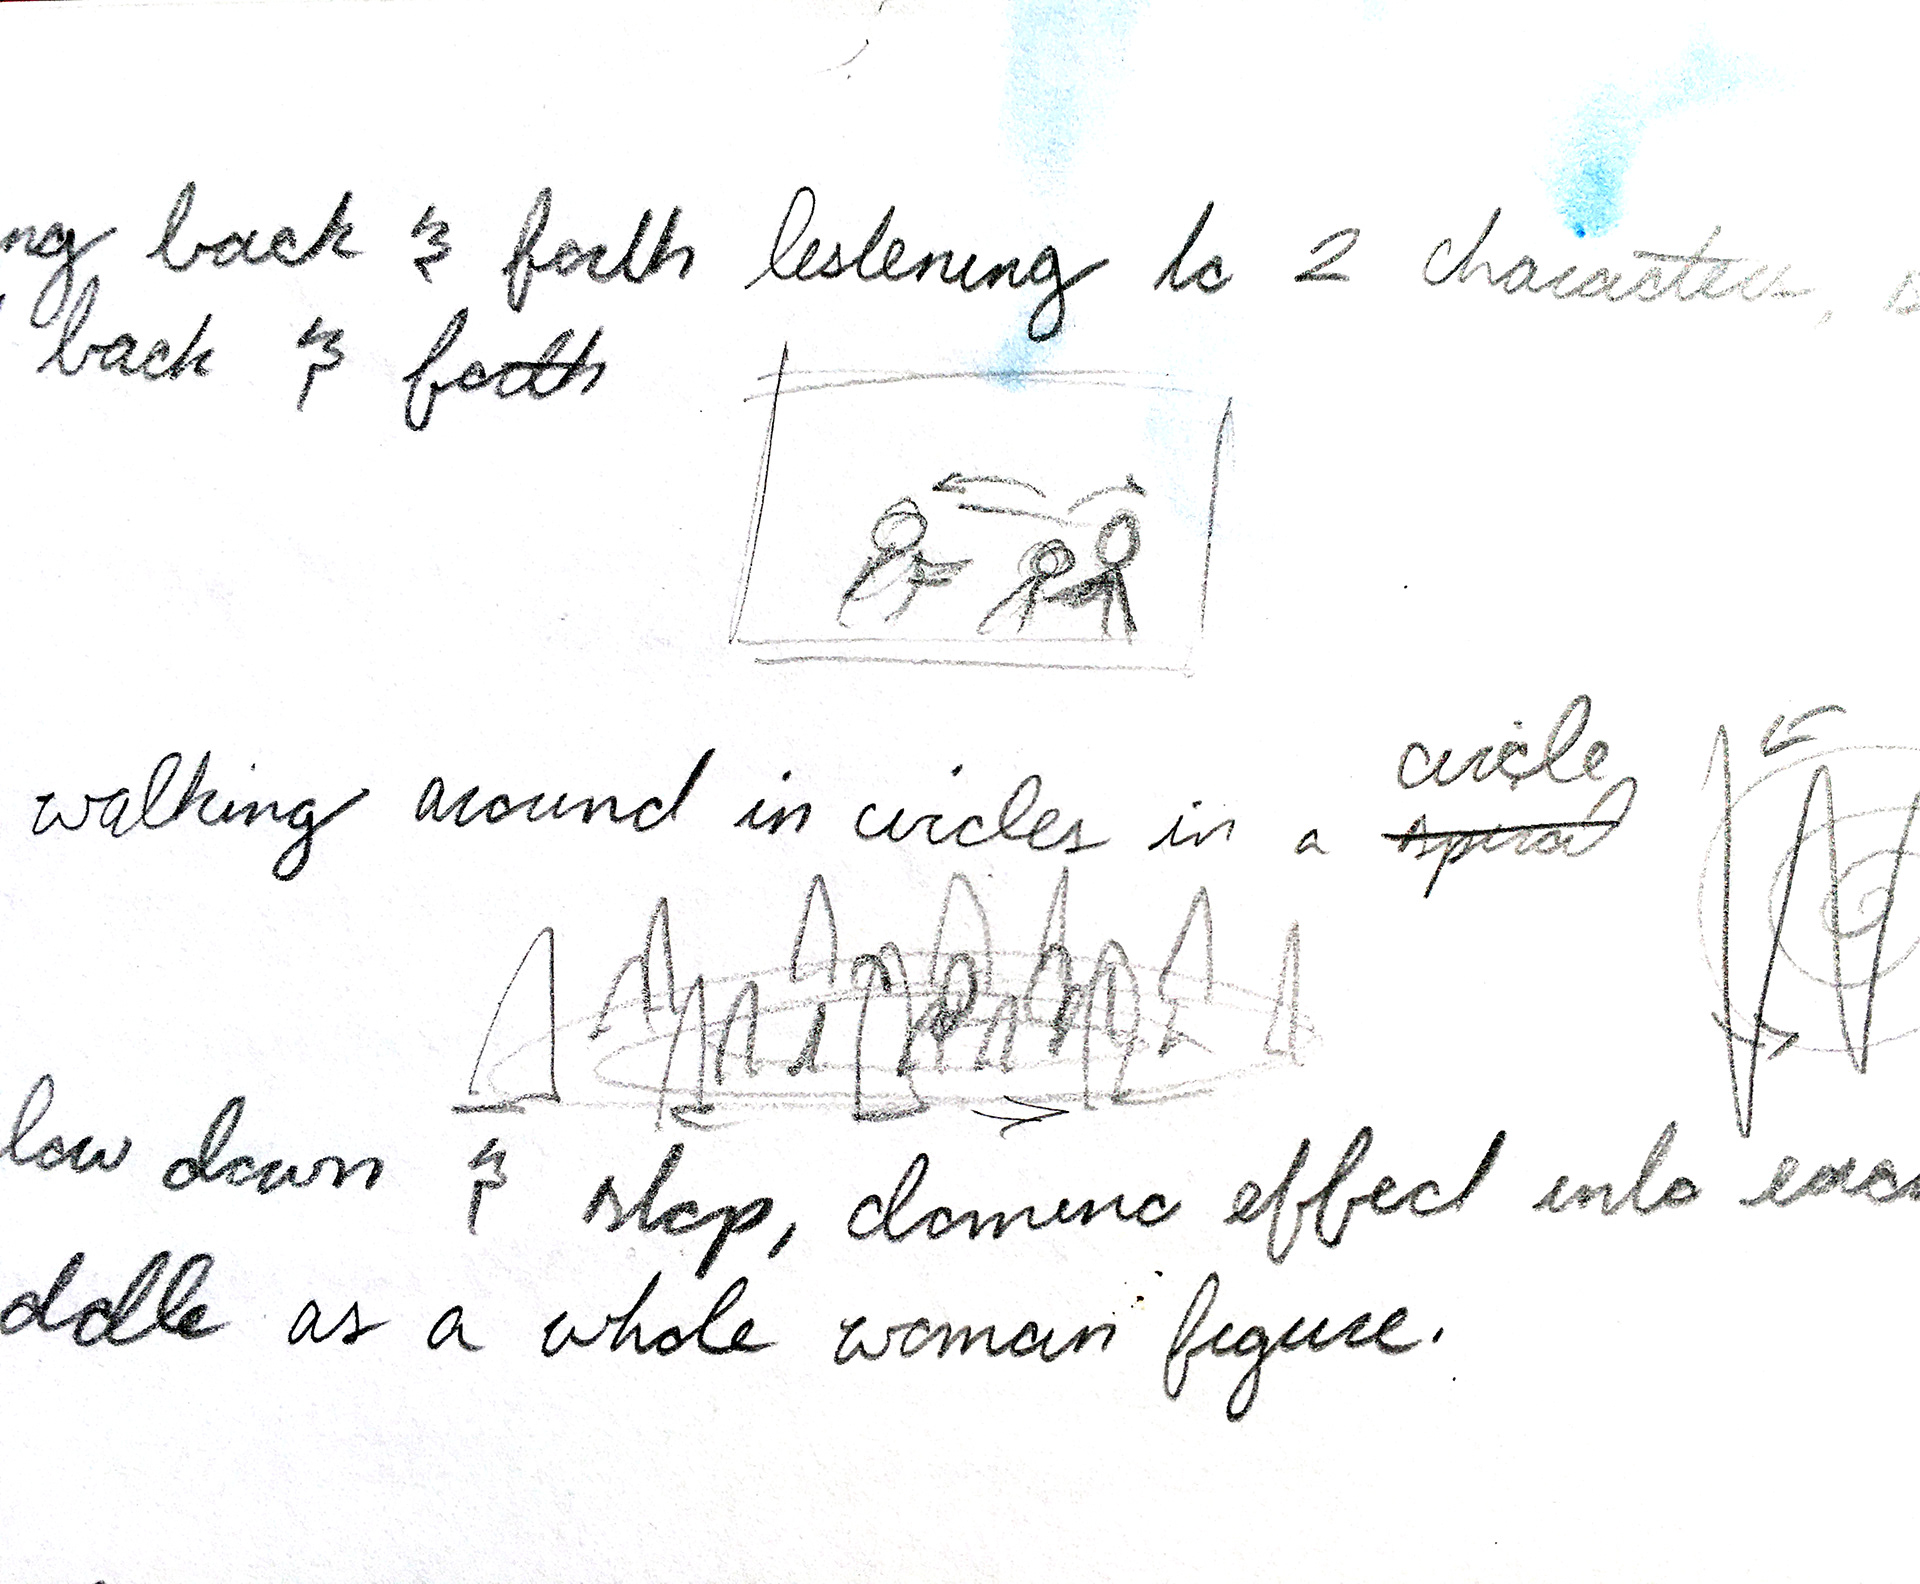 ng back & forth listening to 2 characters,
back & forth
circle
walking around in circles in a spiral
low down & stop, domino effect into
as a whole woman figure.